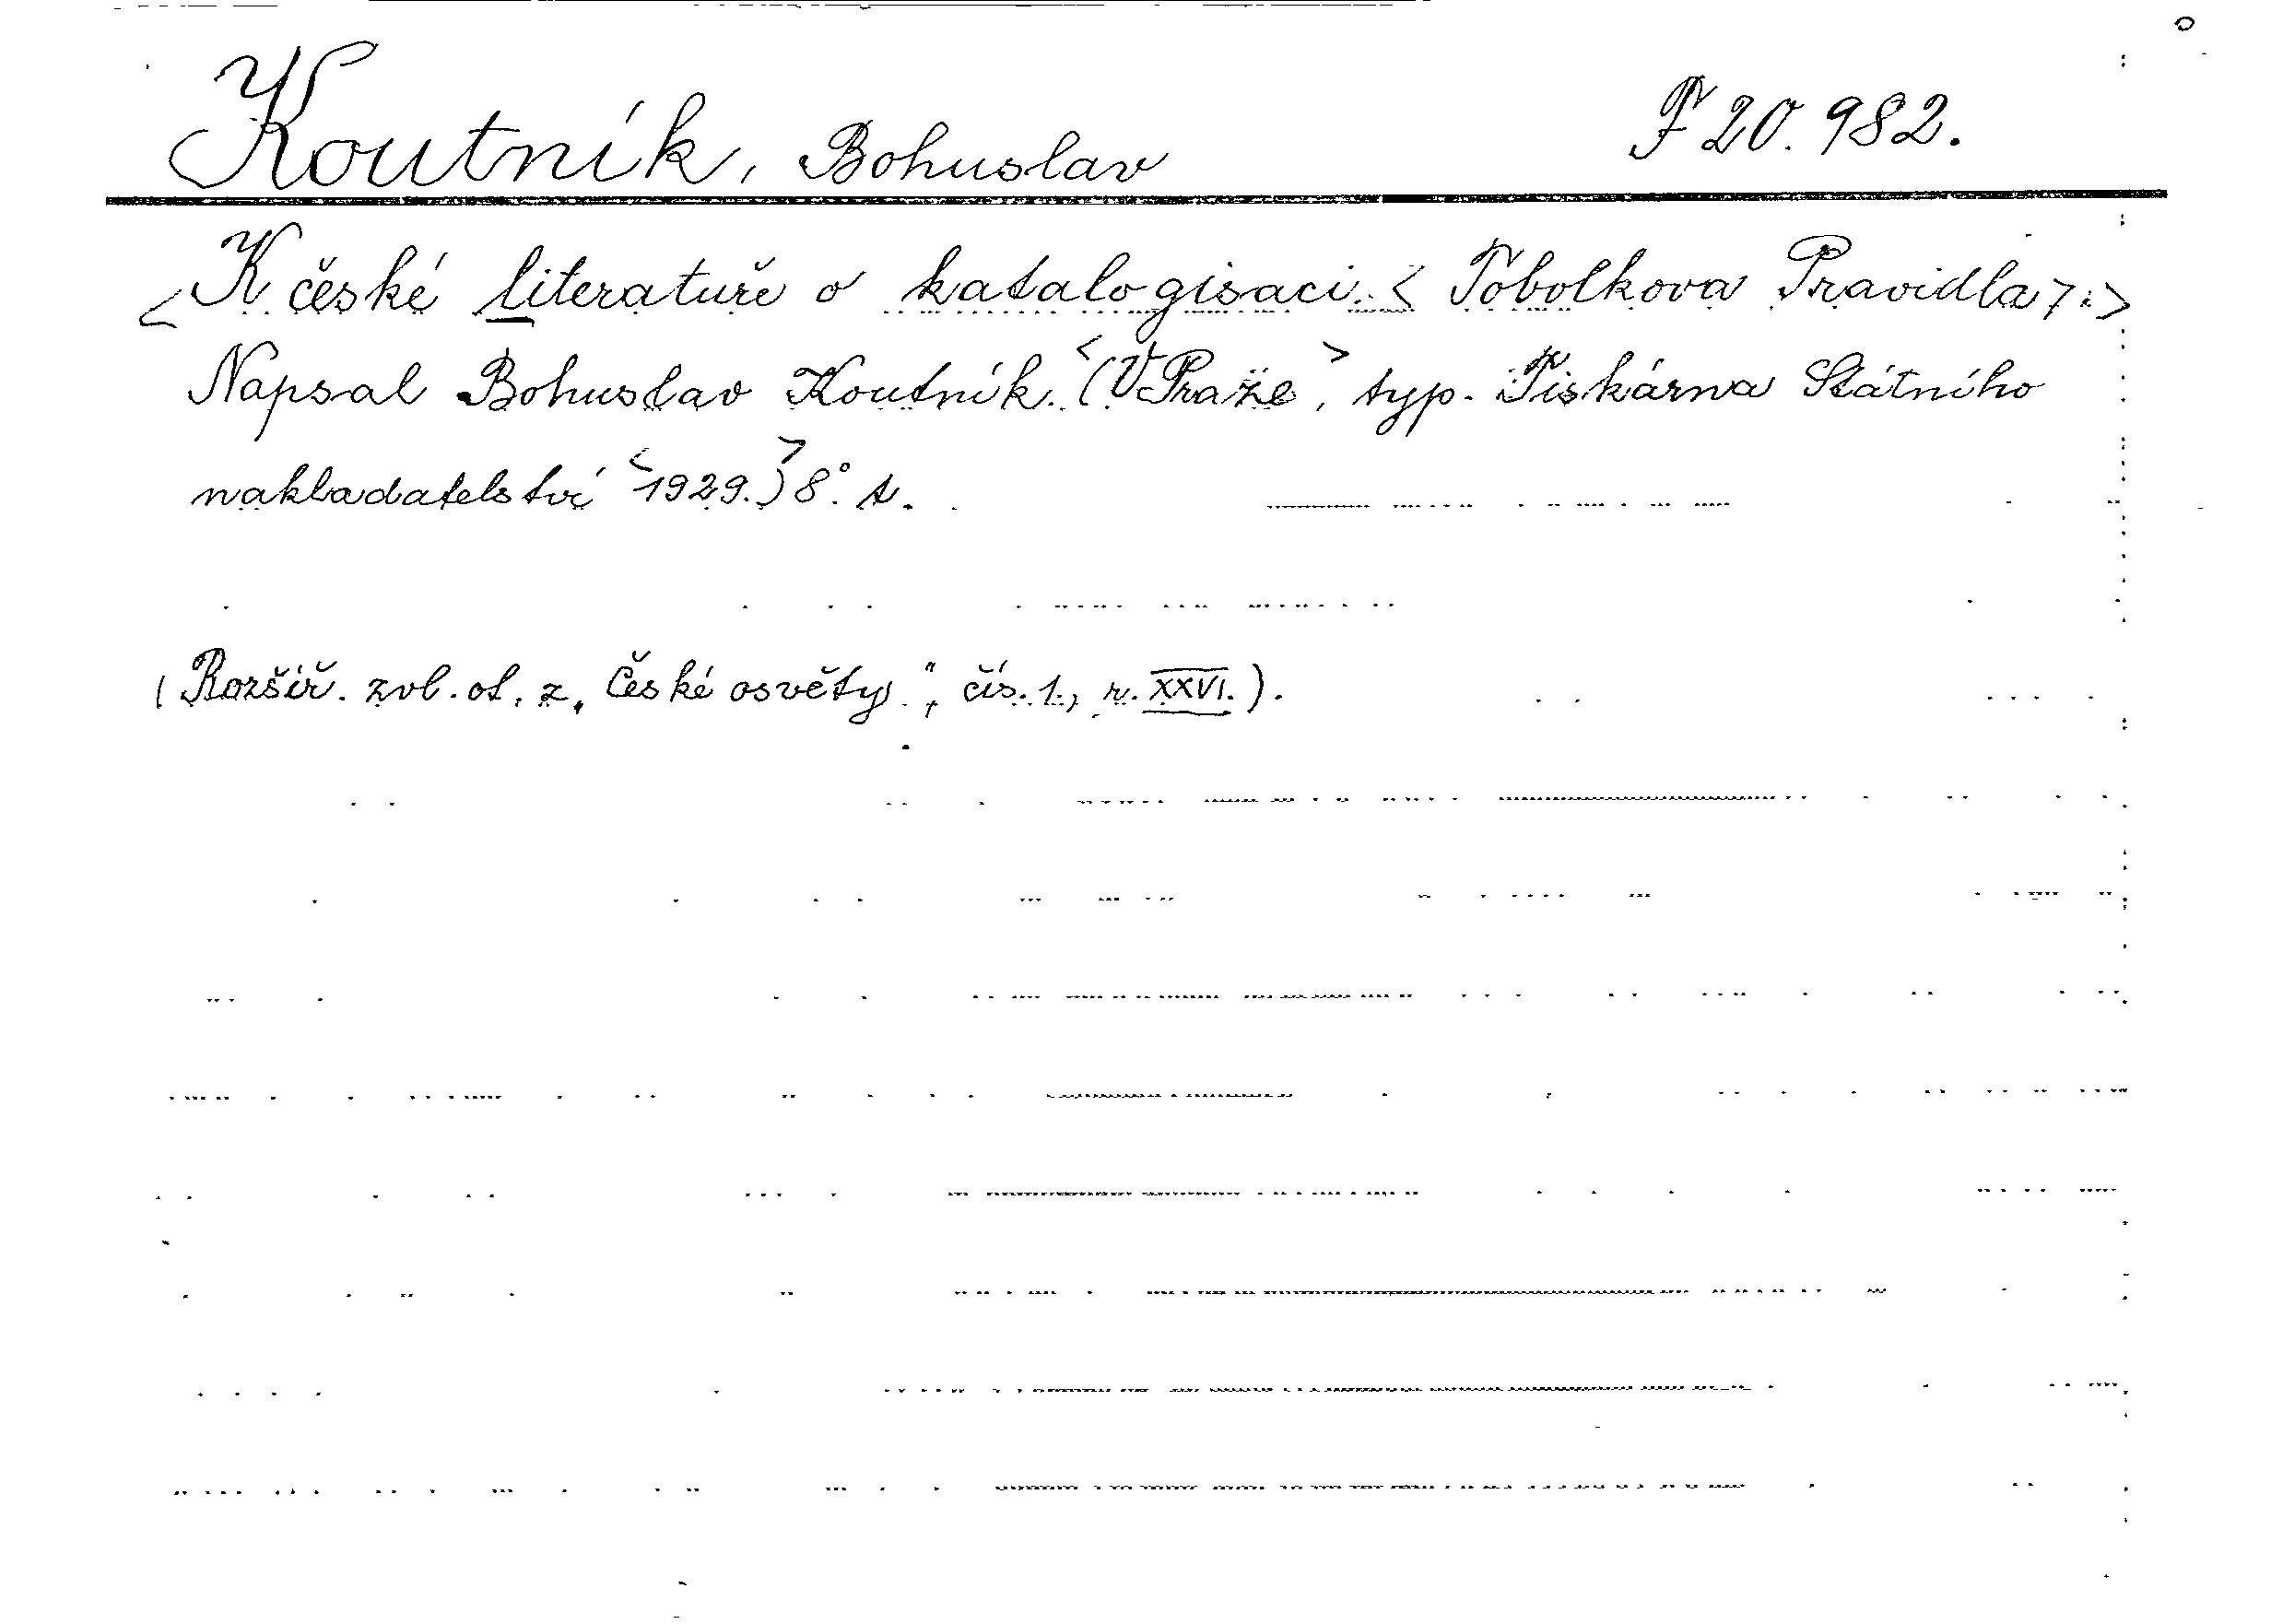 Koutník, Bohuslav F 20.982.
<K české literatuře o katalogisaci. <Tobolkova Pravidla>.>
Napsal Bohuslav Koutník. <(V Praze>, typ. Tiskárna Státního
nakladatelství <1929.)> 8°. s.
(Rozšíř. zvl. ot. z „České osvěty“, čís. 1., r. XXVI.).